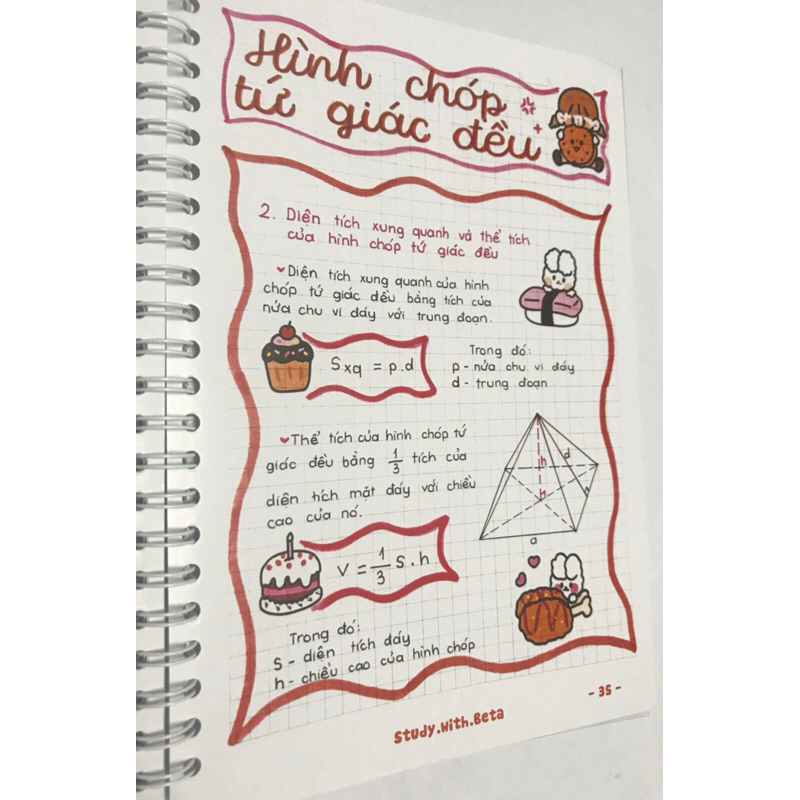 Hình chóp
tứ giác đều
2. Diện tích xung quanh và thể tích
của hình chóp tứ giác đều
Diện tích xung quanh của hình
chóp tứ giác đều bằng tích của
nửa chu vi đáy với trung đoạn.
Sxq = p.d
Trong đó:
p - nửa chu vi đáy
d - trung đoạn
Thể tích của hình chóp tứ
giác đều bằng 1/3 tích của
diện tích mặt đáy với chiều
cao của nó.
h
d
H
a
V = 1/3 S.h
Trong đó:
S - diện tích đáy
h - chiều cao của hình chóp
- 35 -
Study.With.Beta